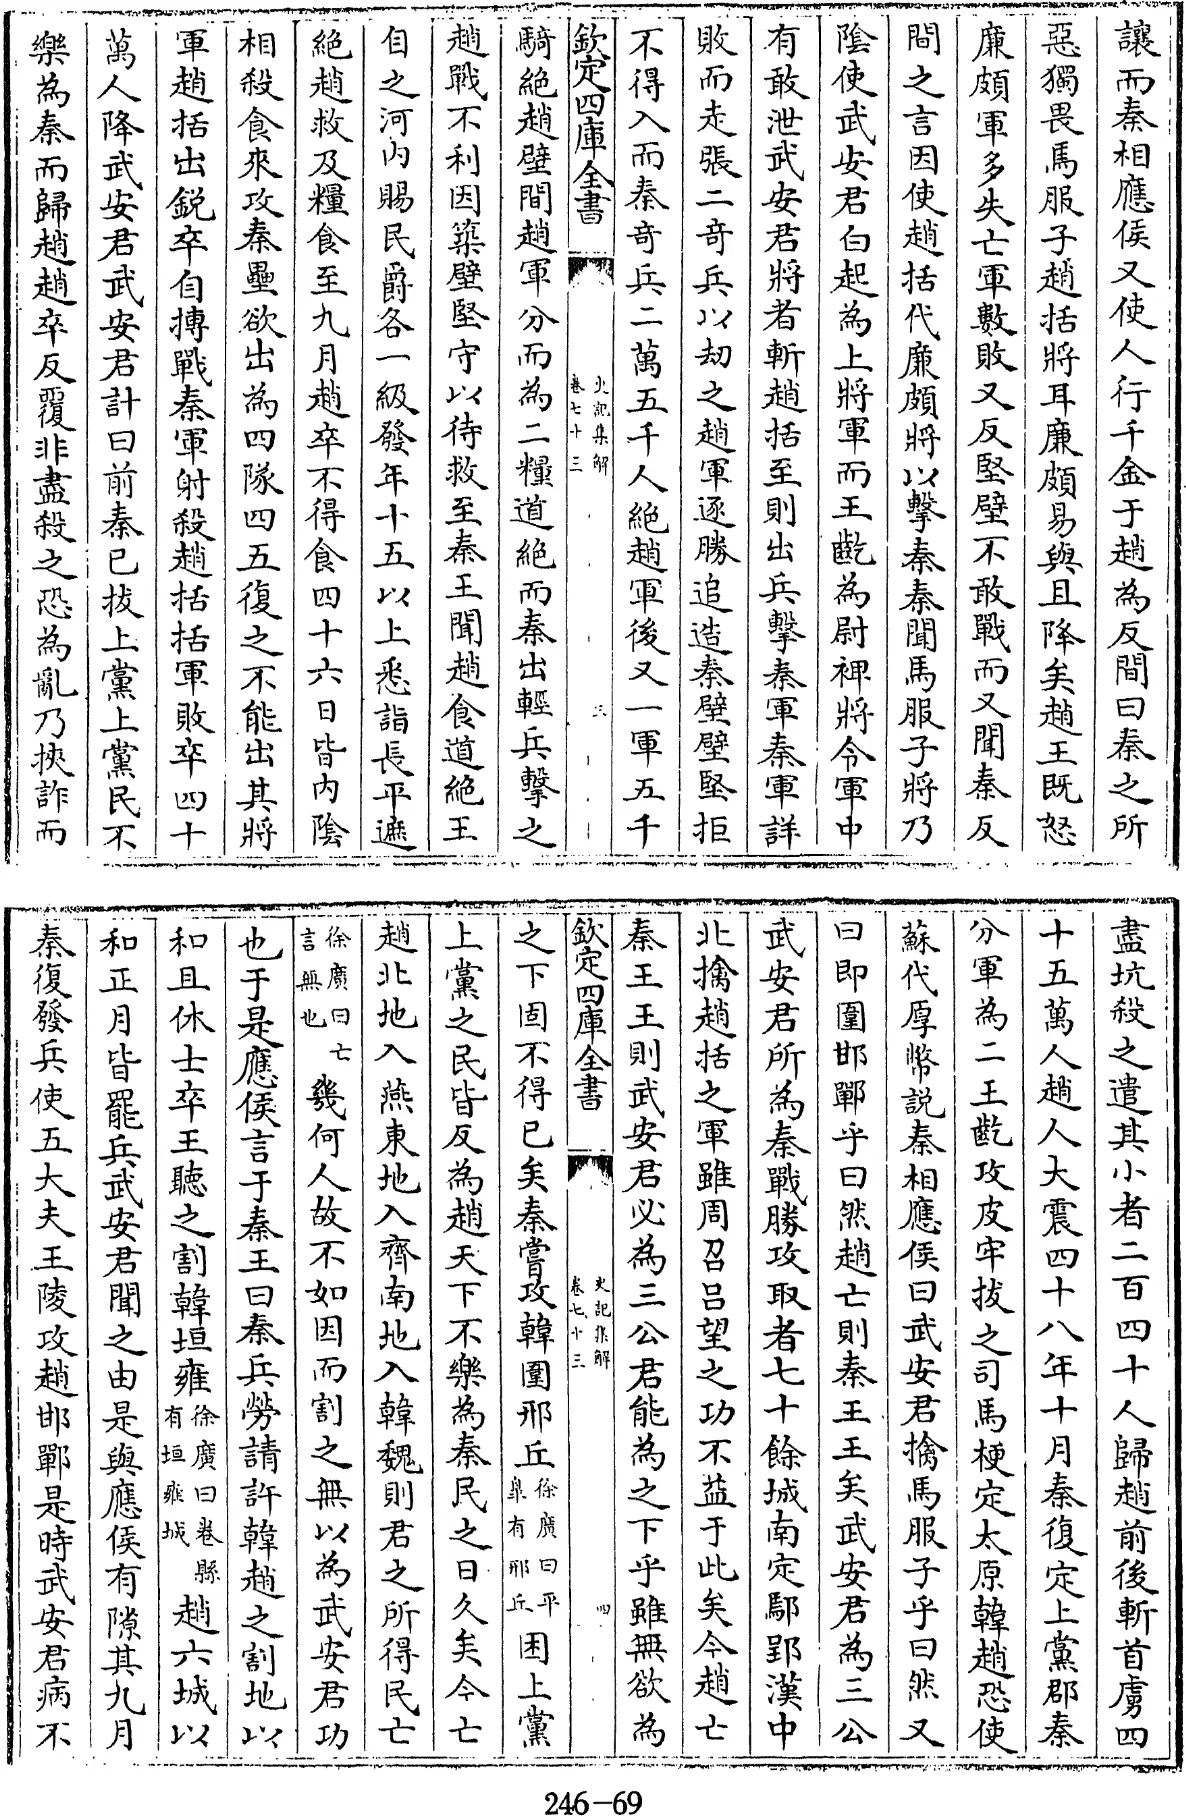 讓而秦相應侯又使人行千金于趙為反間曰秦之所
惡獨畏馬服子趙括將耳廉頗易與且降矣趙王既怒
廉頗軍多失亡軍數敗又反堅壁不敢戰而又聞秦反
間之言因使趙括代廉頗將以擊秦秦聞馬服子將乃
陰使武安君白起為上將軍而王齕為尉裨將令軍中
有敢泄武安君將者斬趙括至則出兵擊秦軍秦軍詳
敗而走張二奇兵以劫之趙軍逐勝追造秦壁壁堅拒
不得入而秦奇兵二萬五千人絶趙軍後又一軍五千
欽定四庫全書
史記集解
卷七十三
三
騎絶趙壁間趙軍分而為二糧道絶而秦出輕兵擊之
趙戰不利因築壁堅守以待救至秦王聞趙食道絶王
自之河内賜民爵各一級發年十五以上悉詣長平遮
絶趙救及糧食至九月趙卒不得食四十六日皆内陰
相殺食來攻秦壘欲出為四隊四五復之不能出其將
軍趙括出鋭卒自搏戰秦軍射殺趙括括軍敗卒四十
萬人降武安君武安君計曰前秦已拔上黨上黨民不
樂為秦而歸趙趙卒反覆非盡殺之恐為亂乃挾詐而
盡坑殺之遣其小者二百四十人歸趙前後斬首虜四
十五萬人趙人大震四十八年十月秦復定上黨郡秦
分軍為二王齕攻皮牢拔之司馬梗定太原韓趙恐使
蘇代厚幣説秦相應侯曰武安君擒馬服子乎曰然又
曰即圍邯鄲乎曰然趙亡則秦王王矣武安君為三公
武安君所為秦戰勝攻取者七十餘城南定鄢郢漢中
北擒趙括之軍雖周召吕望之功不益于此矣今趙亡
秦王王則武安君必為三公君能為之下乎雖無欲為
欽定四庫全書
史記集解
卷七十三
四
之下固不得已矣秦嘗攻韓圍邢丘徐廣曰平臯有邢丘困上黨
上黨之民皆反為趙天下不樂為秦民之日久矣今亡
趙北地入燕東地入齊南地入韓魏則君之所得民亡
徐廣曰亡言無也幾何人故不如因而割之無以為武安君功
也于是應侯言于秦王曰秦兵勞請許韓趙之割地以
和且休士卒王聽之割韓垣雍徐廣曰卷縣有垣雍城趙六城以
和正月皆罷兵武安君聞之由是與應侯有隙其九月
秦復發兵使五大夫王陵攻趙邯鄲是時武安君病不
246-69